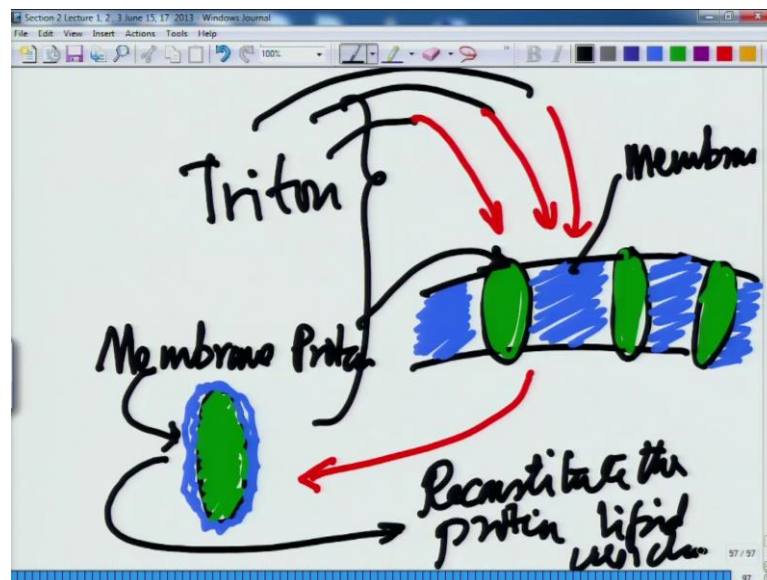 Section 2 Lecture 1, 2 , 3 June 15, 17 2013 - Windows Journal
File Edit View Insert Actions Tools Help
100%
B I
Triton
Membran
Membrane Protein
Reconstitute the
protin lipid
97 / 97
97